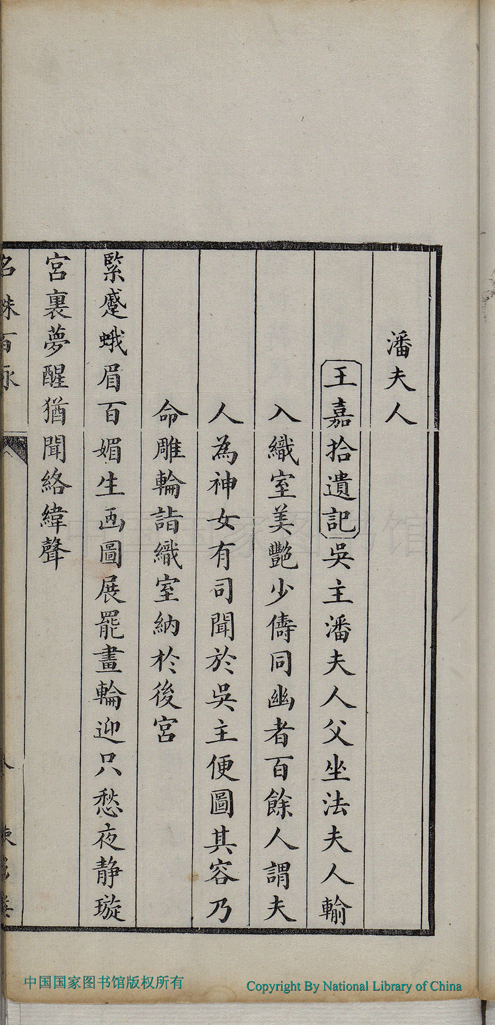 潘夫人
王嘉拾遺記吳主潘夫人父坐法夫人輸
入織室美艷少儔同幽者百餘人謂夫
人為神女有司聞於吳主便圖其容乃
命雕輪詣織室納於後宮
緊蹙蛾眉百媚生画圖展罷畫輪迎只愁夜静璇
宮裏夢醒猶聞絡緯聲
名姝百詠
中国国家图书馆版权所有
Copyright By National Library of China